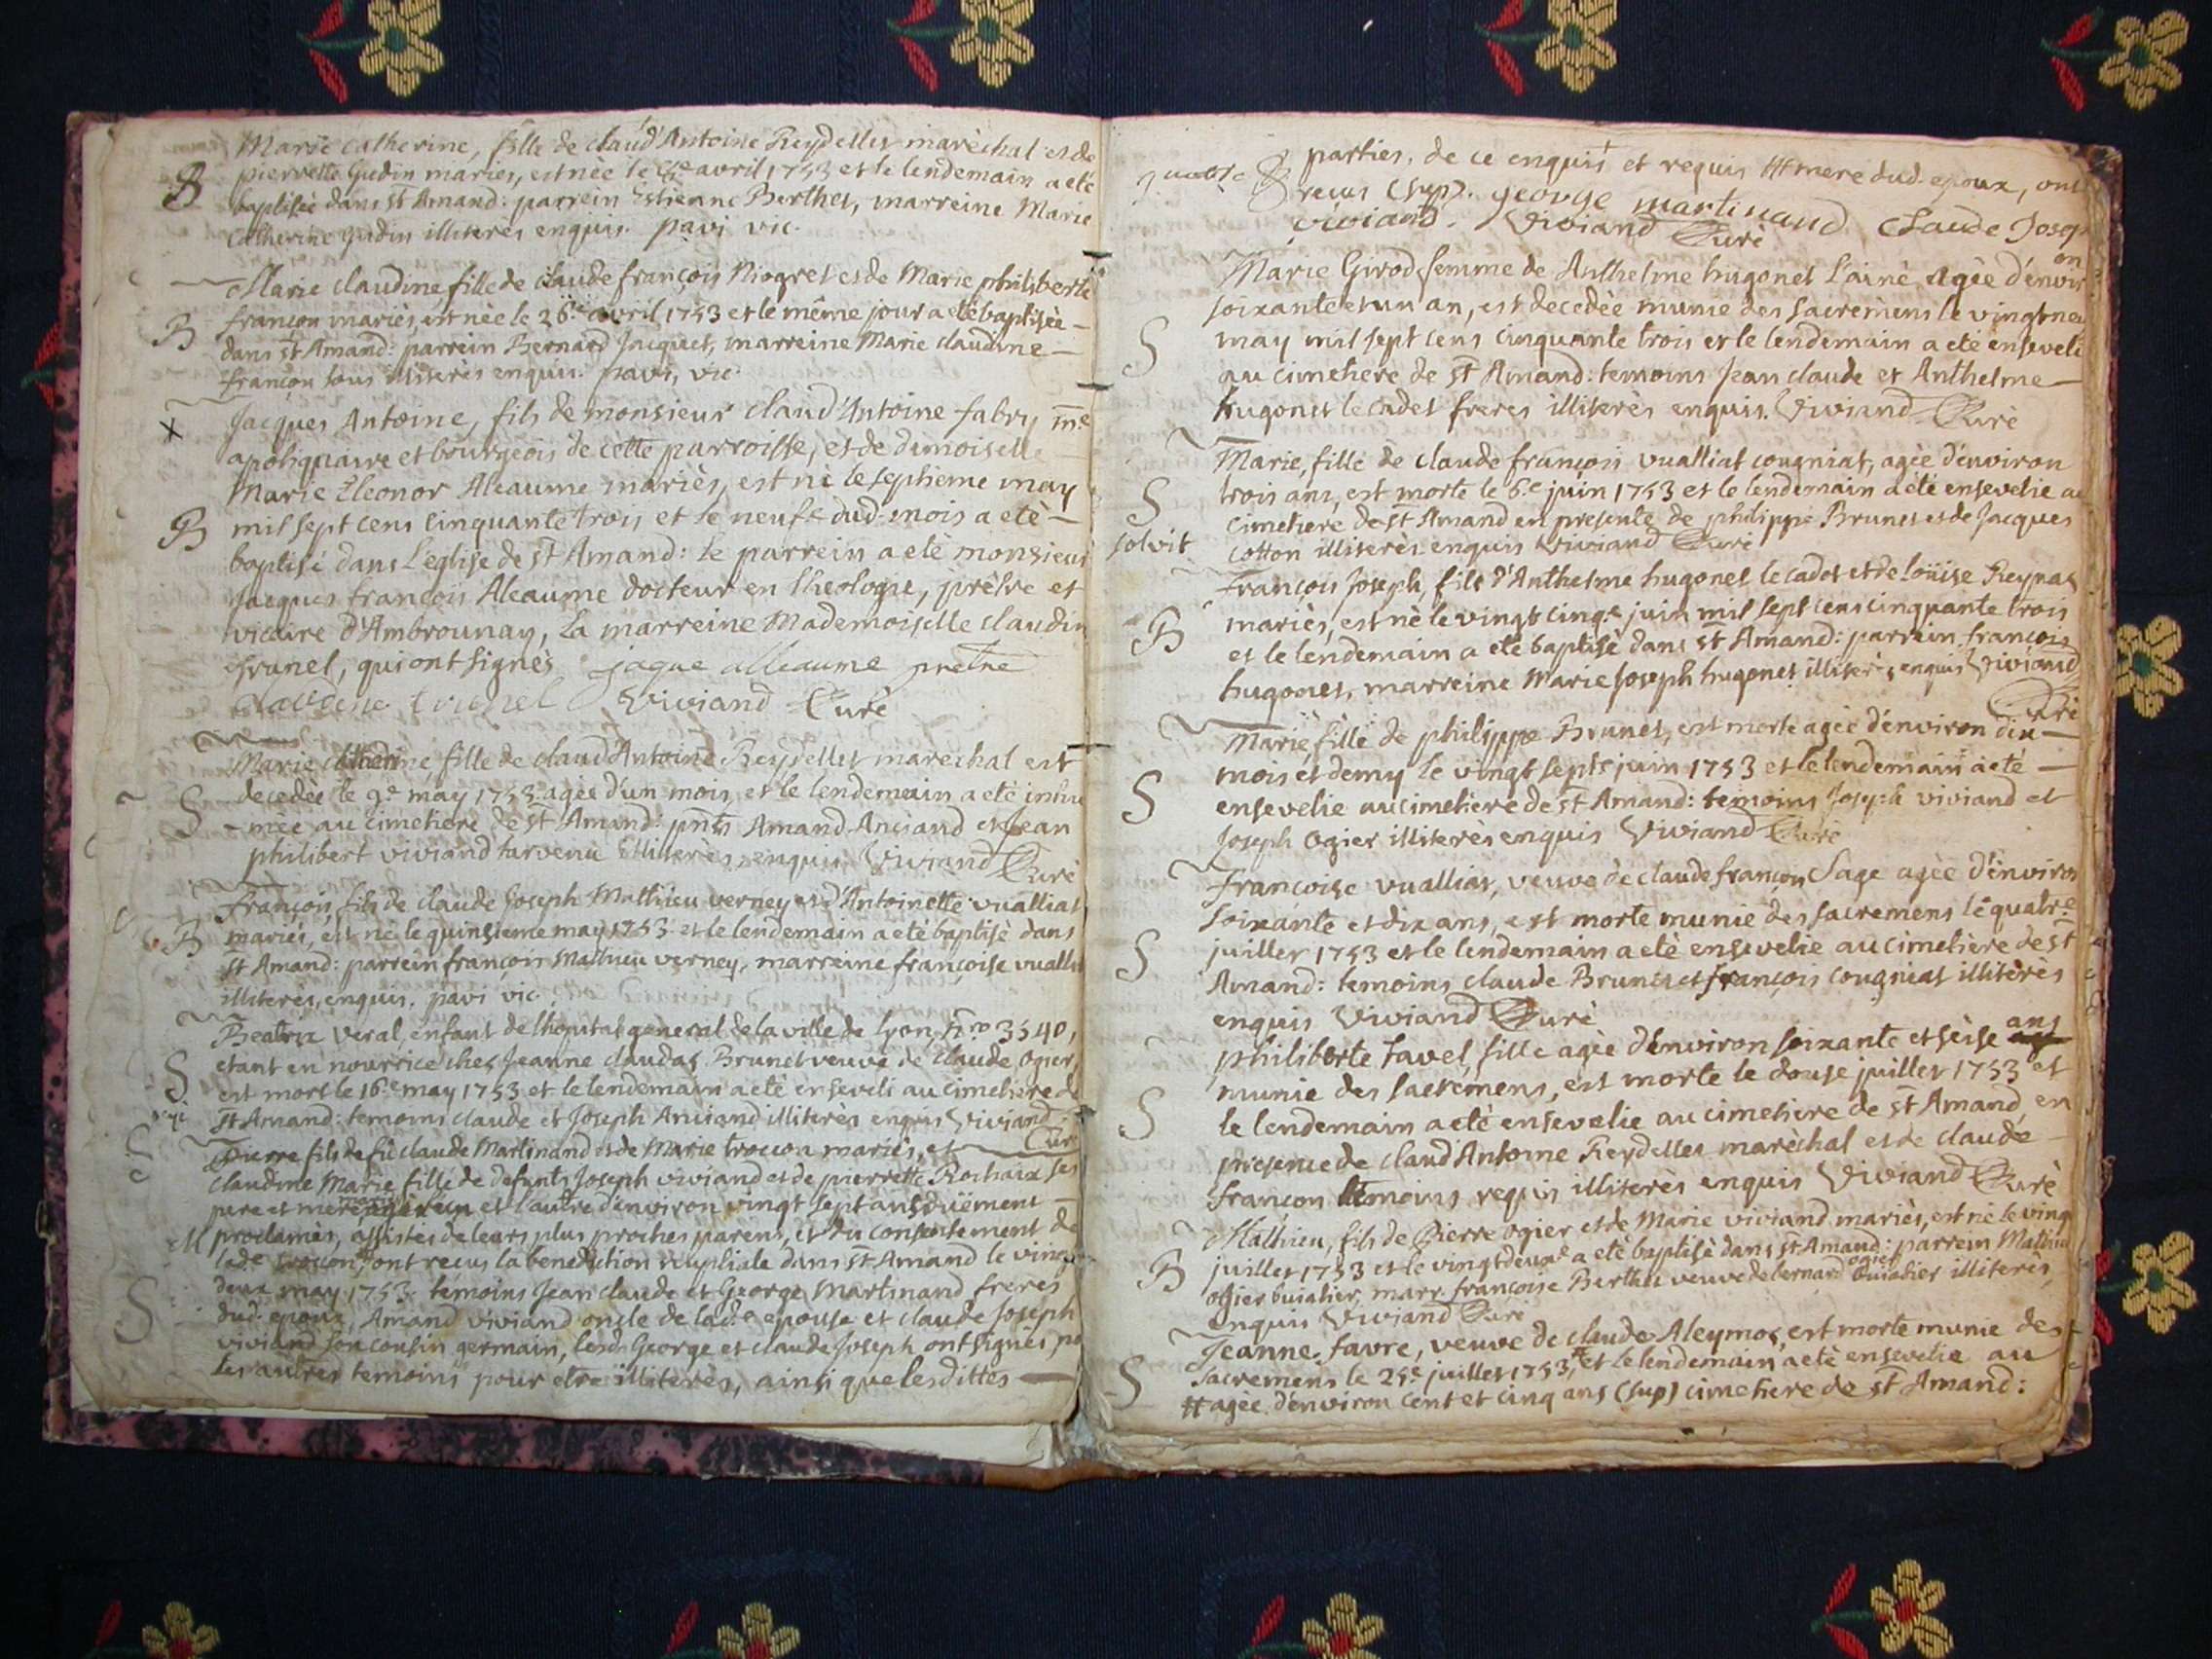 Marie catherine, fille de claud'Antoine Reydellet marèchal et de
pierrette Gudin mariés, est nèe le avril 1753 et le lendemain a etè
B baptisèe dans st Amand: parrein Estienne Berthet, marreine Marie
catherine Gudin illiterès enquis. pavi vic.
Marie claudine, fille de claude françois Niogret et de Marie philiberte
françon mariès, est nèe le 26e avril 1753 et le même jour a etè baptisèe
B dans st Amand: parrein Bernard Jacquet, marreine Marie claudine
françon tous illiterès enquis. pavi, vic.
x Jacques Antoine, fils de monsieur claud'Antoine fabry me
apotiquaire et bourgeois de cette parroisse, et de demoiselle
Marie Eleonor Aleaume mariès, est nè le septieme may
B mil sept cens cinquante trois et le neufe dud. mois a etè
baptisè dans L'eglise de st Amand: le parrein a etè monsieur
Jacques françois Aleaume docteur en theologie, prestre et
vicaire d'Ambrounay, La marreine Mademoiselle claudin
trunel, qui ont signès jaque alleaume pretre
claudine trunel Viviand Curè
Marie catherine, fille de claud'Antoine Reydellet marechal est
decedèe le 9e may 1753 agèe d'un mois, et le lendemain a etè inhu
S mèe au cimetiere de st Amand: pnts Amand Anciand et Jean
philibert viviand tarvenu illiterès enquis Viviand Curè
françois, fils de claude Joseph Mathieu verney et d'Antoinette vualliat
B mariès, est nè le quinsieme may 1753 et le lendemain a etè baptisè dans
st Amand: parrein françois Mathieu verney, marreine françoise vualliat
illiterès, enquis. pavi vic.
Beatrix veral, enfant de l'hopital general de la ville de lyon, no 3540,
S etant en nourrice ches Jeanne claudas Brunet veuve de claude ogier,
est mort le 16e may 1753 et le lendemain a etè enseveli au cimetiere de
st Amand: temoins claude et Joseph Anciand illiterès enquis Viviand
Curè
Pierre fils de fû claude Martinand et de Marie troccon mariès, et
claudine Marie fille de defunts Joseph viviand et de pierrette Rochaix ses
pere et mere et l'autre d'environ vingt sept ans duëment
M proclamès, assistès de leurs plus proches parens, et du consentement de
lade troccon, ont recus la benediction nuptiale dans st Amand le vingt
deux may 1753. temoins Jean claude et George Martinand freres
S dud. epoux, Amand viviand oncle de lade epouse et claude Joseph
viviand son cousin germain, lesd. George et claude Joseph ont signès
Les autres temoins pour etre illiterès, ainsi que lesdittes
parties, de ce enquis et requis # mere dud. epoux, ont
recus (sup). george martinand Claude Joseph
viviand. Viviand Curè
Marie Girod femme de Anthelme hugonet L'ainè agèe d'environ
soixante et un an, est decedèe munie des sacremens le vingt neuf
S may mil sept cens cinquante trois et le lendemain a etè enseveli
au cimetiere de st Amand: temoins Jean claude et Anthelme
hugonet le cadet freres illiterès enquis. Viviand Curè
Marie, fille de claude françois vualliat cougniat, agèe d'environ
S trois ans, est morte le 6.e juin 1753 et le lendemain a etè ensevelie au
cimetiere de st Amand en presente de philippe Brunet et de Jacques
solvit cotton illiterès enquis Viviand Curè
françois Joseph, fils d'Anthelme hugonet le cadet et de loüise Reynas
mariès, est nè le vingt cinqe juin mil sept cens cinquante trois
B et le lendemain a etè baptisè dans st Amand: parrein françois
hugonet, marreine Marie Joseph hugonet illiterès enquis Viviand
Curè
Marie, fille de philippe Brunet, est morte agèe d'environ dix
mois et demy le vingt septe juin 1753 et le lendemain a etè
S ensevelie au cimetiere de st Amand: temoins Joseph viviand et
Joseph ogier illiterès enquis Viviand Curè
Françoise vualliat, veuve de claude françon Sage agèe d'environ
soixante et dix ans, est morte munie des sacremens le quatre
S juillet 1753 et le lendemain a etè ensevelie au cimetière de st
Amand: temoins claude Brunet et françois cougniat illitèrès
enquis Viviand Curè
philiberte tavel, fille agèe d'environ soixante et seise ans
munie des sacremens, est morte le douse juillet 1753 et
S le lendemain a etè ensevelie au cimetiere de st Amand, en
presence de claud'Antoine Reydellet marèchal et de claude
françon temoins requis illiterès enquis Viviand Curè
Mathieu, fils de Pierre ogier et de Marie viviand mariès, est nè le vingt
B juillet 1753 et le vingt deuxe a etè baptisè dans st Amand: parrein Mathieu
ogier buiatier, marr. francoise Berthet veuve de bernard ogier buiatier illiterès
enquis Viviand Curè
Jeanne favre, veuve de claude Aleymos, est morte munie des
S sacremens le 25e juillet 1753, # et le lendemain a etè ensevelie au
# agèe d'environ cent et cinq ans (sup) cimetiere de st Amand: